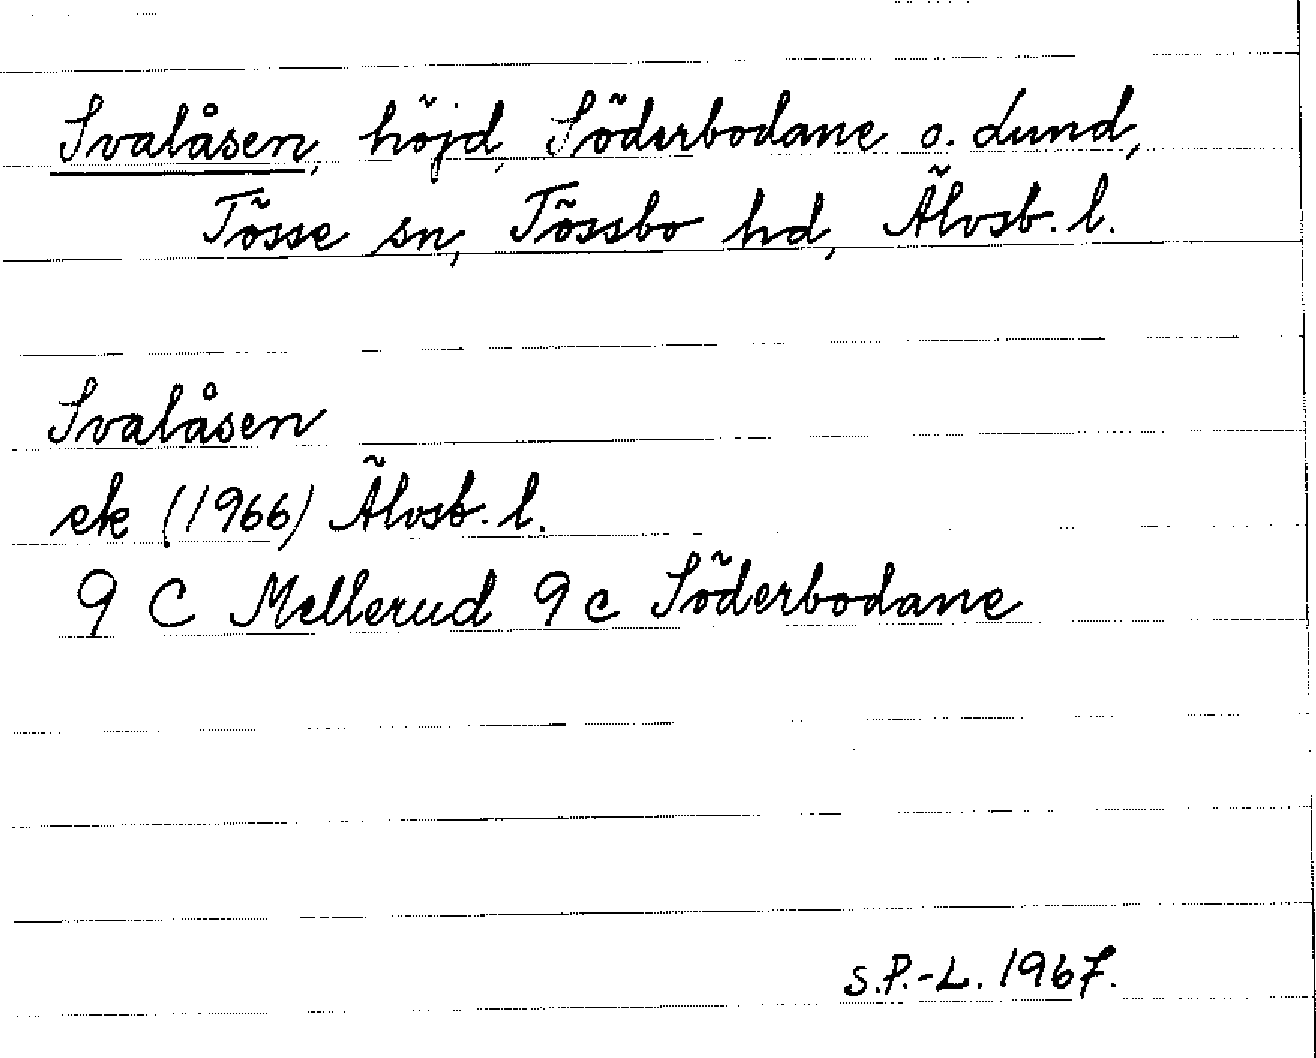 Svalåsen, höjd, Söderbodane o. Lund,
Tösse sn, Tössbo hd, Älvsb. l.
Svalåsen
ek (1966) Älvsb. l.
9 C Mellerud 9 c Söderbodane
S.P.-L. 1967.